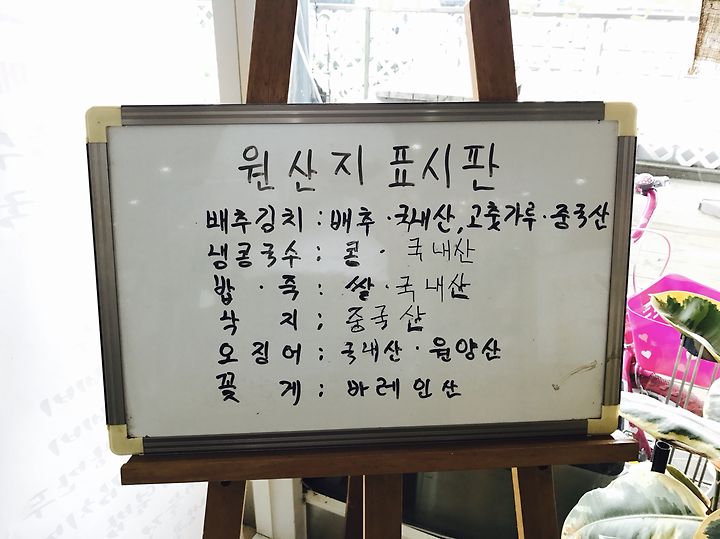 원산지 표시판
배추김치 : 배추 · 국내산, 고춧가루 · 중국산
냉콩국수 : 콩 · 국내산
밥 · 죽 : 쌀 · 국내산
낙지 : 중국산
오징어 : 국내산 · 원양산
꽃게 : 바레인산